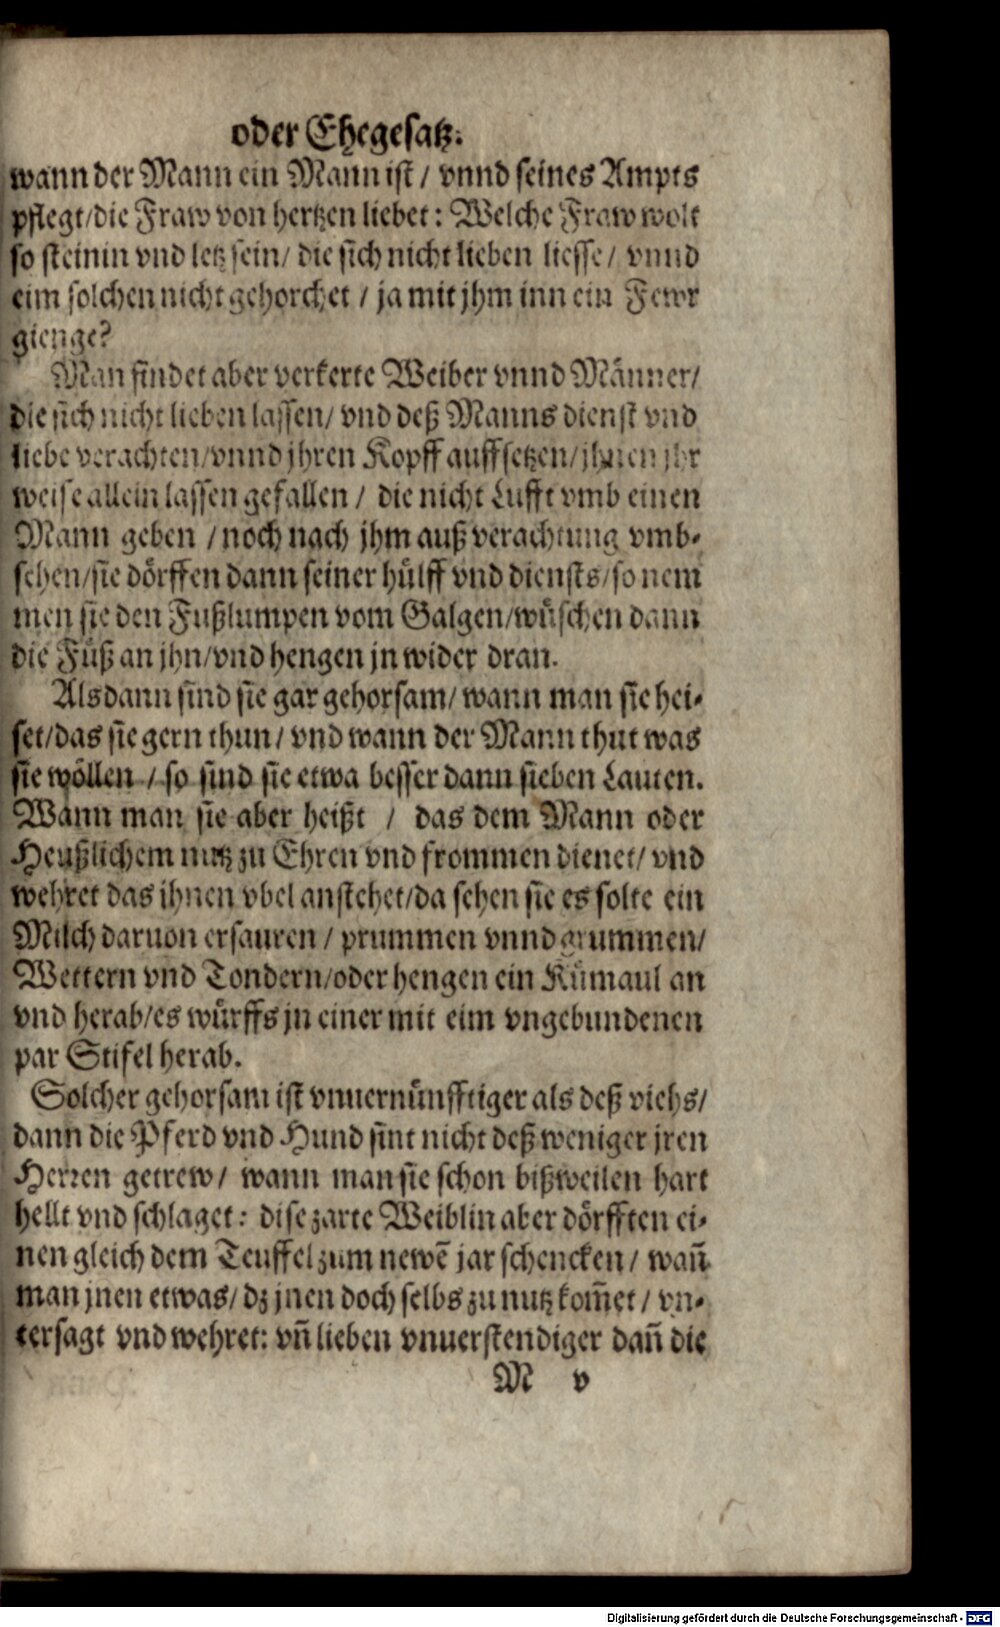 oder Ehegesatz.
wann der Mann ein Mann ist / vnnd seines Ampts
pflegt/die Fraw von hertzen liebet: Welche Fraw wolt
so steinin vnd letz sein/ die sich nicht lieben liesse/ vnnd
eim solchen nicht gehorchet / ja mit jhm inn ein Fewr
gienge?
Man findet aber verkerte Weiber vnnd Maͤnner/
die sich nicht lieben lassen/ vnd deß Manns dienst vnd
liebe verachten/vnnd jhren Kopff auffsetzen/jhnen jhr
weise allein lassen gefallen / die nicht Lufft vmb einen
Mann geben / noch nach jhm auß verachtung vmb-
sehen/sie doͤrffen dann seiner huͤlff vnd diensts/so nem
men sie den Fußlumpen vom Galgen/wuͤschen dann
die Fuͤß an jhn/vnd hengen jn wider dran.
Alsdann sind sie gar gehorsam/ wann man sie hei-
set/das sie gern thun/ vnd wann der Mann thut was
sie woͤllen / so sind sie etwa besser dann sieben Lauten.
Wann man sie aber heißt / das dem Mann oder
Heußlichem nutz zu Ehren vnd frommen dienet/ vnd
wehret das ihnen vbel anstehet/da sehen sie es solte ein
Milch daruon ersauren / prummen vnnd grummen/
Wettern vnd Tondern/oder hengen ein Kuͤmaul an
vnd herab/es wuͤrffs jn einer mit eim vngebundenen
par Stifel herab.
Solcher gehorsam ist vnuernuͤnfftiger als deß viehs/
dann die Pferd vnd Hund sint nicht deß weniger jren
Herren getrew/ wann man sie schon bißweilen hart
hellt vnd schlaget: dise zarte Weiblin aber doͤrfften ei-
nen gleich dem Teuffel zum newē jar schencken/ wañ
man jnen etwas/ dz jnen doch selbs zu nutz kom̃et/ vn-
tersagt vnd wehret: vñ lieben vnuerstendiger dañ die
M v
Digitalisierung gefördert durch die Deutsche Forschungsgemeinschaft - DFG